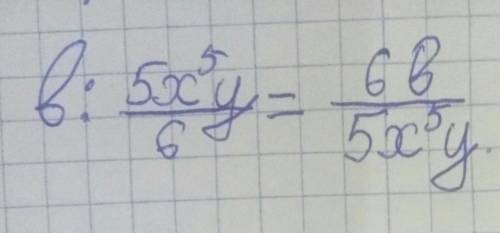 в: 5x⁵y/6 = 6в/5x⁵y.